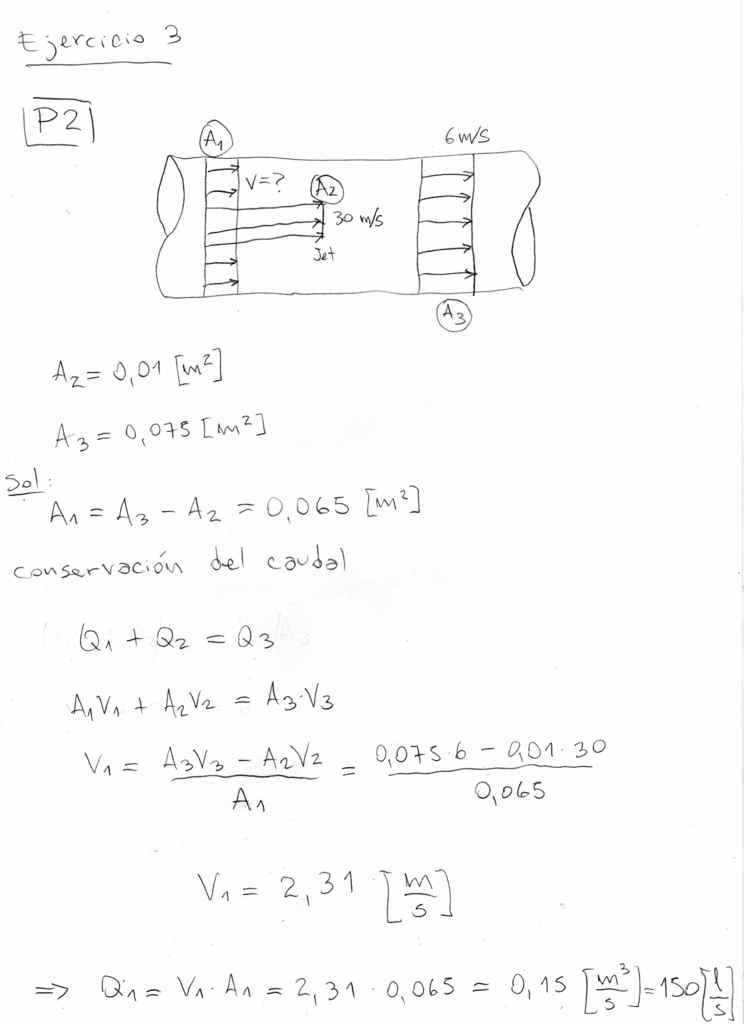 Ejercicio 3
P2
A₁
6 m/s
V=?
A₂
30 m/s
Jet
A₃
A₂ = 0,01 [m²]
A₃ = 0,075 [m²]
Sol:
A₁ = A₃ - A₂ = 0,065 [m²]
conservación del caudal
Q₁ + Q₂ = Q₃
A₁V₁ + A₂V₂ = A₃·V₃
V₁ = (A₃V₃ - A₂V₂)/A₁ = (0,075·6 - 0,01·30)/0,065
V₁ = 2,31 [m/s]
⇒ Q₁ = V₁·A₁ = 2,31·0,065 = 0,15 [m³/s] = 150 [l/s]